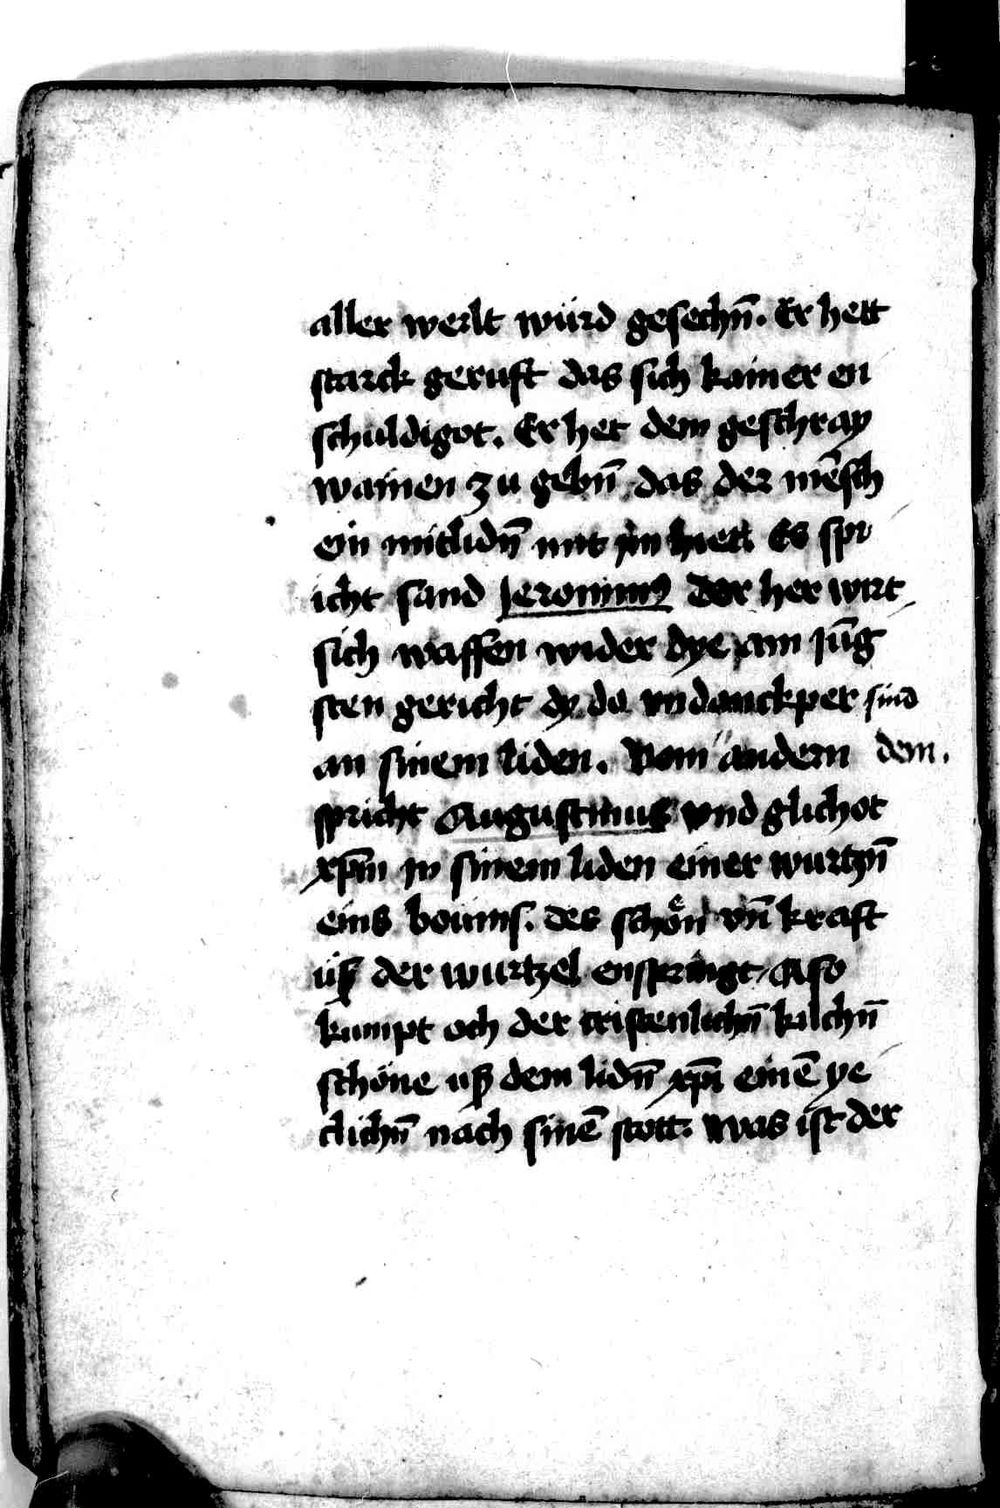 aller werlt würd gesechn̄. Er hett
starck geruft das sich kainer en
schuldigot. Er het dem geschray
wainen zu gebn̄ das der mēsch
ein mitlidn̄ mit ym hiett. Es spr
icht sand Jeronimus der her wirt
sich waffen wider dye am jūg
sten gericht dy da vndanckper sind
an sinem liden. Vom andern dem.
spricht Augustinus vnd glichot
xp̄m in sinem liden einer wurtzn̄
eins boums. des schoͤn vn̄ kraft
uß der wurtzel enspringt, Also
kumpt och der cristenlichn̄ kilchn̄
schöne uß dem lidn̄ xp̄i einē ye
clichn̄ nach sinē stott. Was ist der